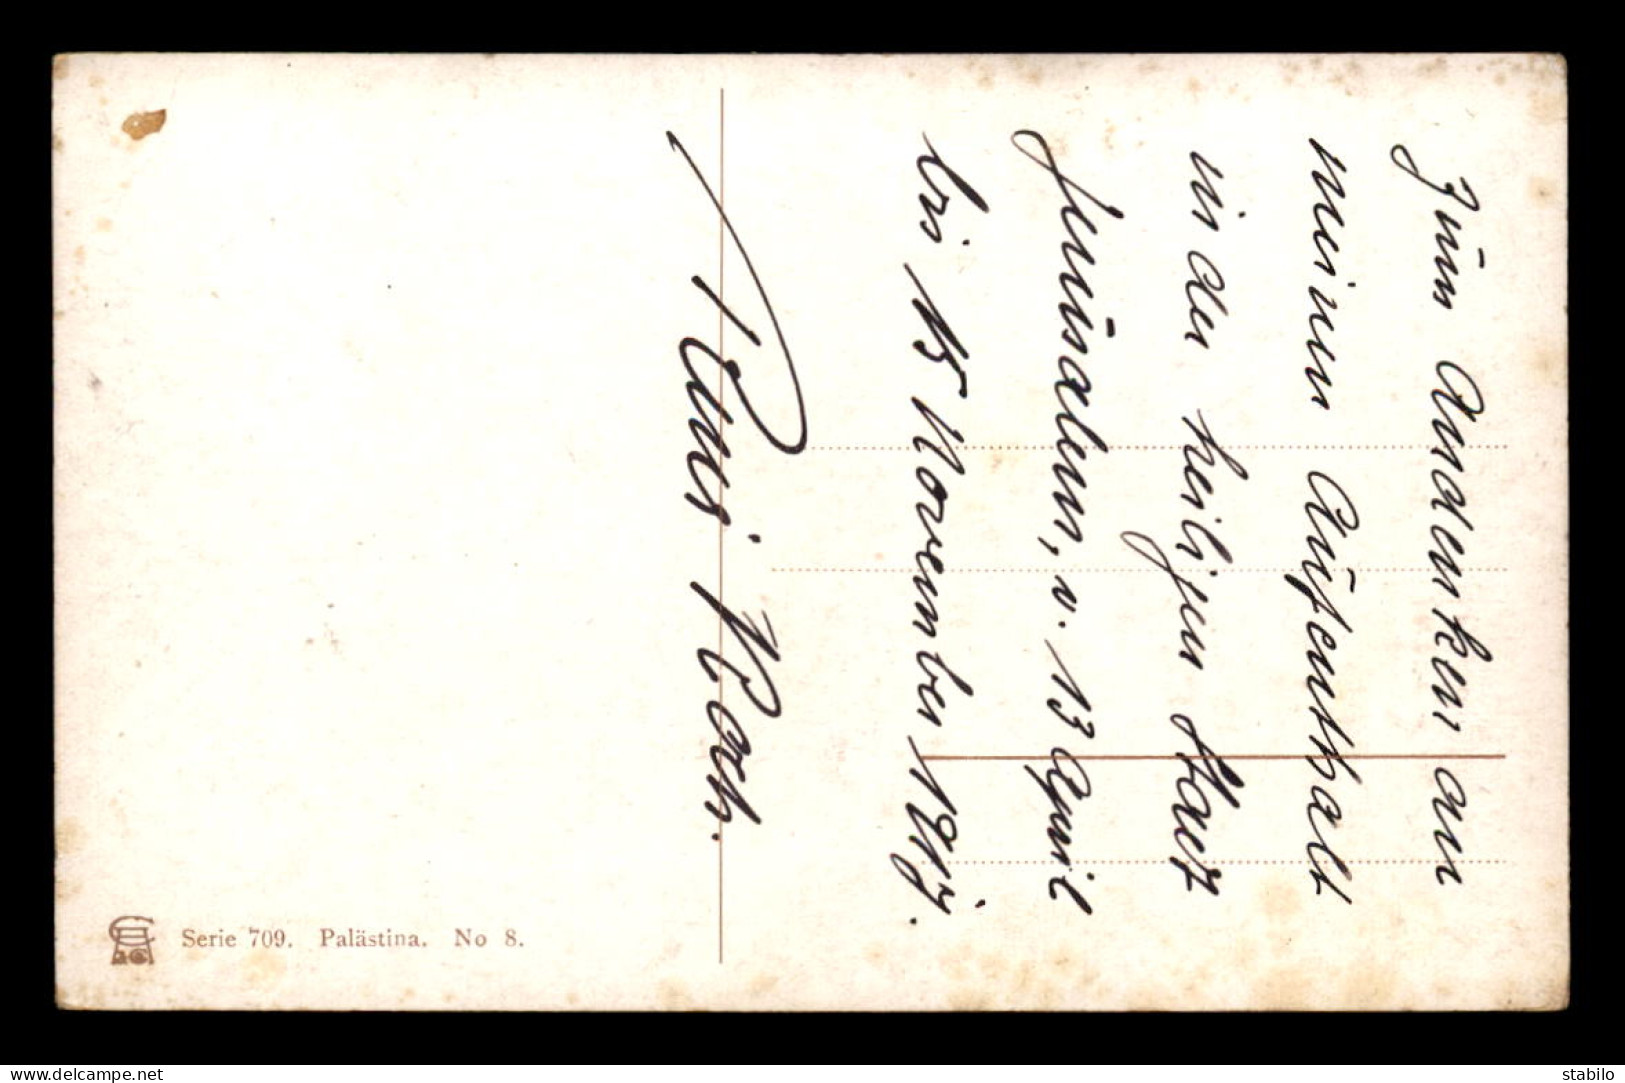 Zum Andenken an
meinen Aufenthalt
in der heiligen Stadt
Jerusalem, v. 13 April
bis 15 November 191
Koch.
Serie 709. Palästina. No 8.
www.delcampe.net
stabilo